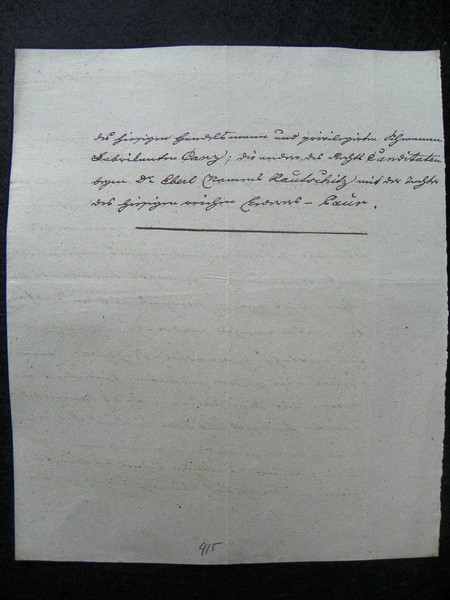 des hiesigen Handelsmann und privilegirten
Fabrikanten Canz; die andere, des Rechts Canditaten
beym Dr. Eberl Namens Kautschitz mit der Tochter
des hiesigen reichen
915